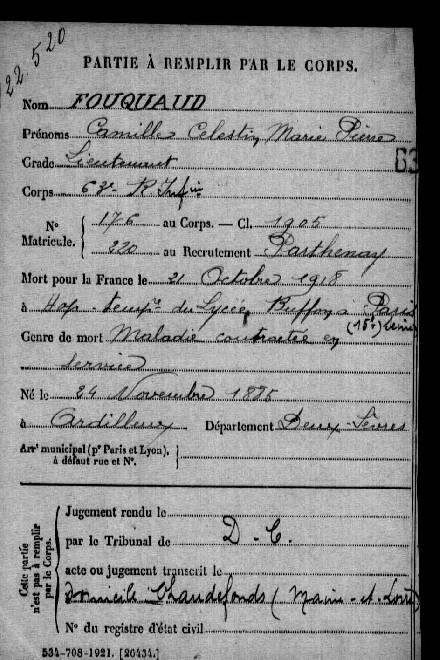 22 520
PARTIE À REMPLIR PAR LE CORPS.
Nom FOUQUAUD
Prénoms Camille Celestin Marie Pierre
Grade Lieutenant
63
Corps 63e R Infie
N° Matricule. 176 au Corps. — Cl. 1905
220 au Recrutement Parthenay
Mort pour la France le 21 Octobre 1918
à Hop. temp. du Lycée Buffon à Paris
(15e) Seine
Genre de mort Maladie contractée en
service
Né le 24 Novembre 1885
à Ardilleux Département Deux-Sèvres
Arrt municipal (pr Paris et Lyon),
à défaut rue et N°.
Cette partie n'est pas à remplir par le Corps.
Jugement rendu le
par le Tribunal de D. C.
acte ou jugement transcrit le
domicile Chaudefonds (Maine-et-Loire)
N° du registre d'état civil
534-708-1921. [20434.]